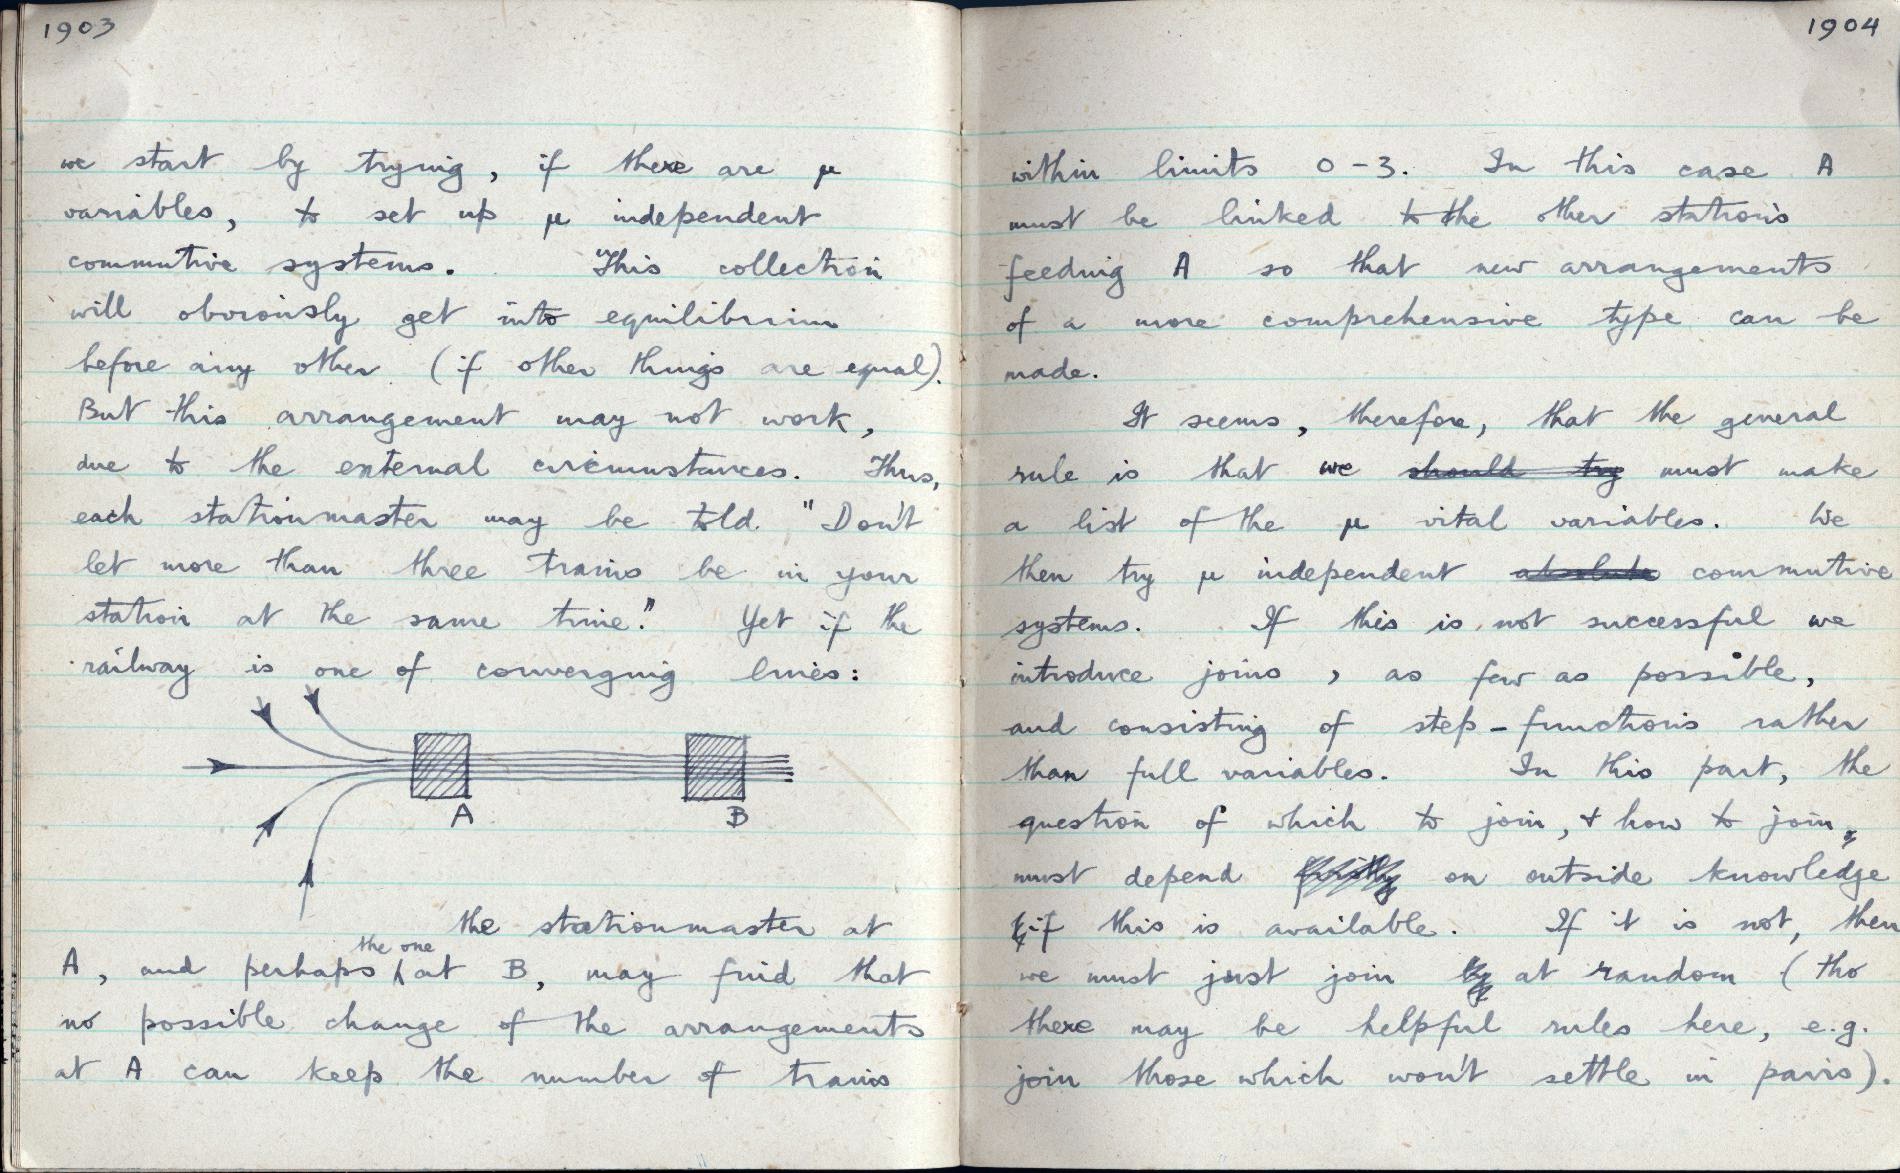 1903
we start by trying, if there are μ
variables, to set up μ independent
commutive systems. This collection
will obviously get into equilibrium
before any other (if other things are equal).
But this arrangement may not work,
due to the external circumstances. Thus,
each stationmaster may be told "Don't
let more than three trains be in your
station at the same time." Yet if the
railway is one of converging lines:
A
B
the stationmaster at
A, and perhaps the one at B, may find that
no possible change of the arrangements
at A can keep the number of trains
1904
within limits 0-3. In this case A
must be linked to the other stations
feeding A so that new arrangements
of a more comprehensive type can be
made.
It seems, therefore, that the general
rule is that we should try must make
a list of the μ vital variables. We
then try μ independent absolute commutive
systems. If this is not successful we
introduce joins, as few as possible,
and consisting of step-functions rather
than full variables. In this part, the
question of which to join, & how to join,
must depend on outside knowledge
if this is available. If it is not, then
we must just join at random (tho
there may be helpful rules here, e.g.
join those which won't settle in pairs).